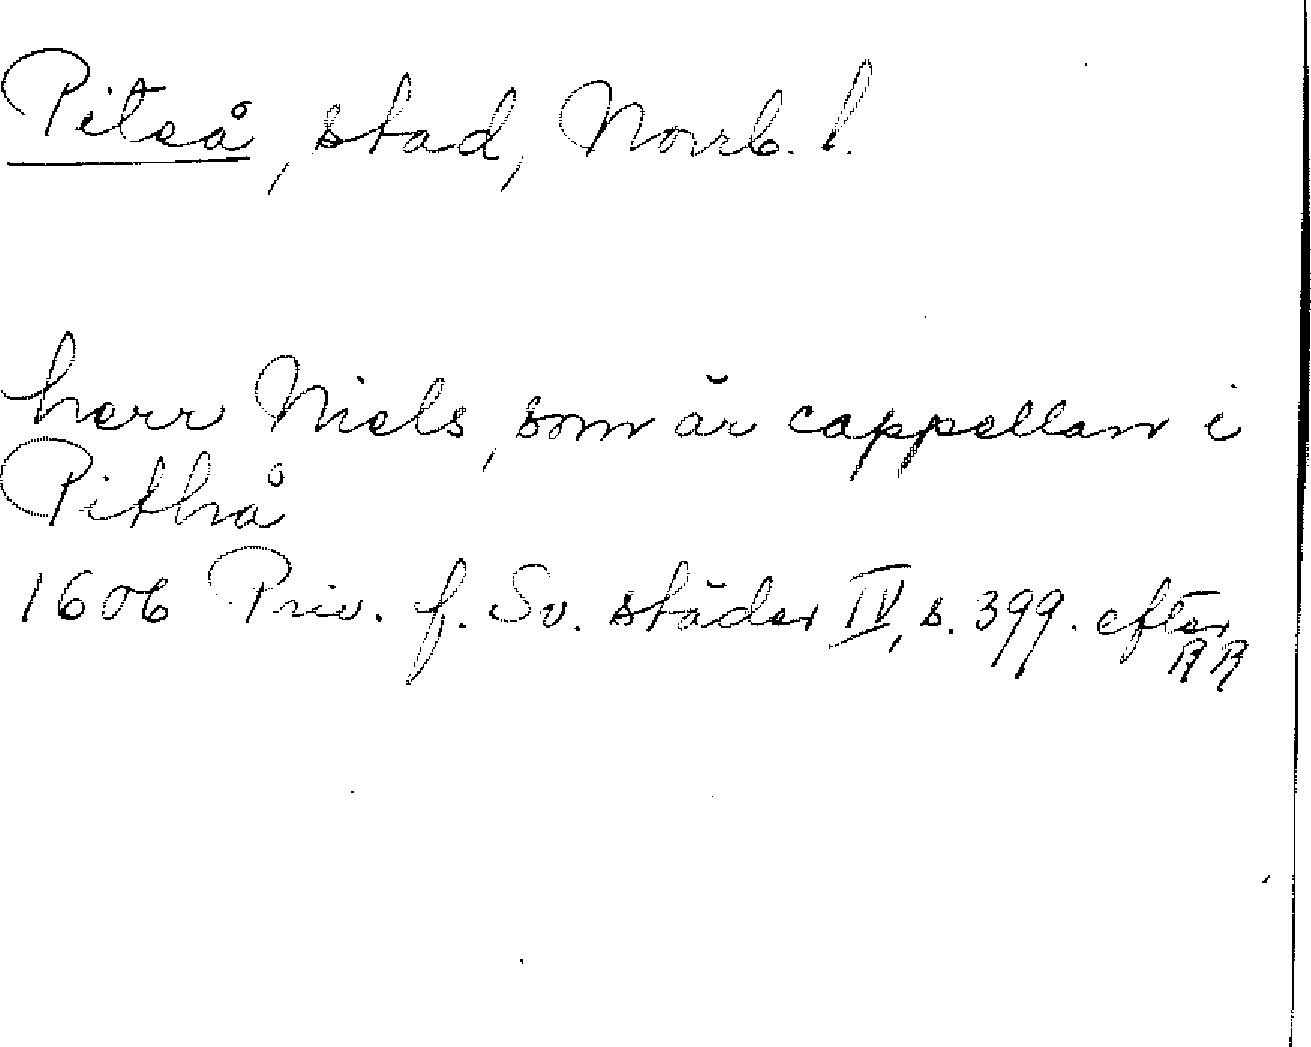 Piteå, stad, Norrb. l.
herr Niels, som är cappellan i
Pithå
1606 Priv. f. Sv. städer IV, s. 399. efter
RR